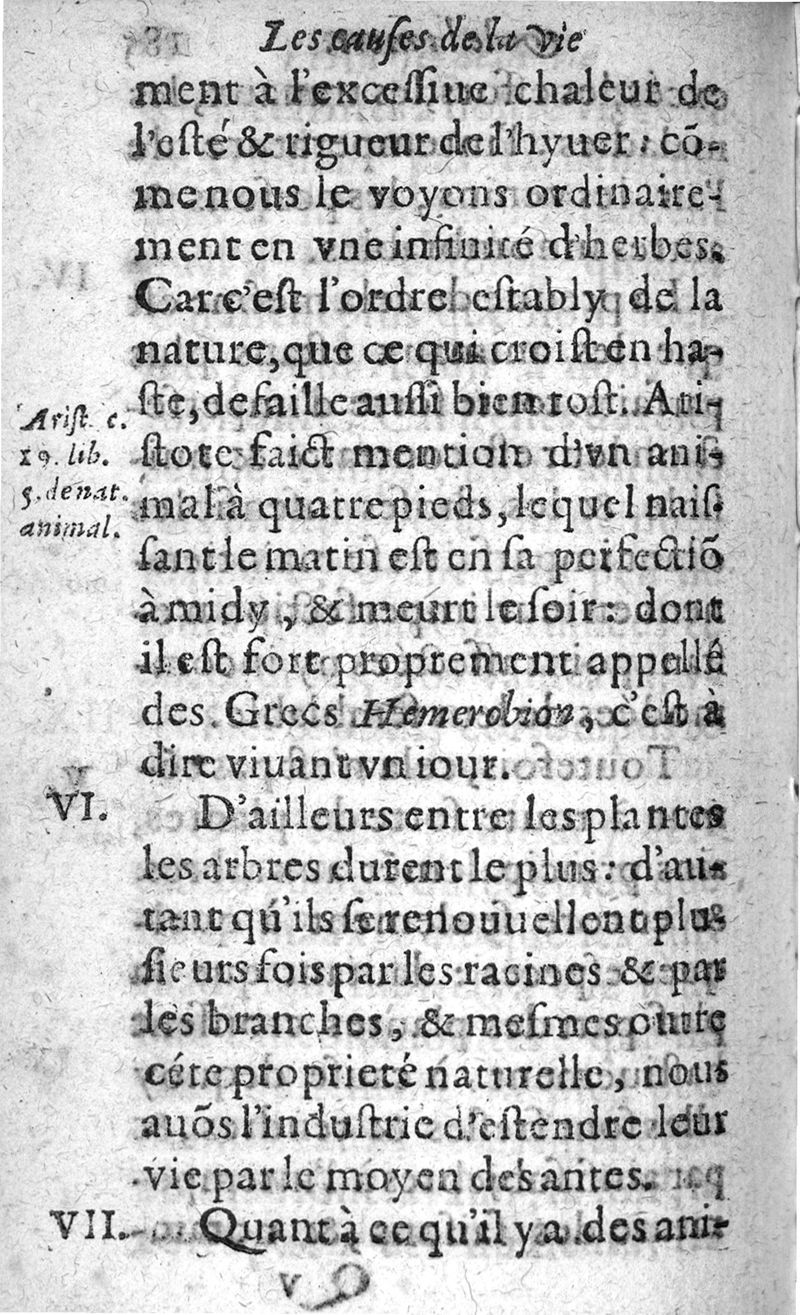 Les cauſes de la vie
ment à l'exceſſiue chaleur de
l'eſté & rigueur de l'hyuer: cō-
me nous le voyons ordinaire-
ment en vne infinité d'herbes.
Car c'eſt l'ordre eſtably de la
nature, que ce qui croiſt en ha-
ſte, defaille auſſi bien toſt. Ari-
ſtote faict mention d'vn ani-
mal à quatre pieds, lequel naiſ-
ſant le matin eſt en ſa perfectiō
à midy, & meurt le ſoir: dont
il eſt fort proprement appellé
des Grecs Hemerobion, c'eſt à
dire viuant vn iour.
Ariſt. c.
19. lib.
5. de nat.
animal.
VI.
D'ailleurs entre les plantes
les arbres durent le plus: d'au-
tant qu'ils ſe renouuellent plu-
ſieurs fois par les racines & par
les branches, & meſmes outre
céte proprieté naturelle, nous
auōs l'induſtrie d'eſtendre leur
vie par le moyen des antes.
VII.
Quant à ce qu'il y a des ani-